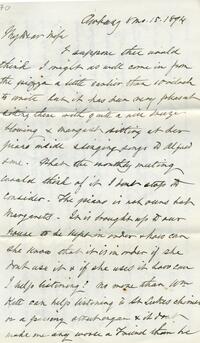 70
8mo. 15. 1894
My dear
I suppose thee would
think I might as well come in from
the piazza a little earlier than 10 oclock
to write but it has been very pleasant
there with quite a nice breeze
blowing & Margaret sitting at her
piano inside singing songs to
. What the monthly meeting
would think of it I dont stop to
consider. The piano is not ours but
Margarets. It is brought up to our
house to be kept in order & how can
she know that it is in order if she
dont use it & if she uses it how can
I help listening? No more than
can help listening to St Lukes chimes
or a street organ & it dont
make me any worse a Friend than he